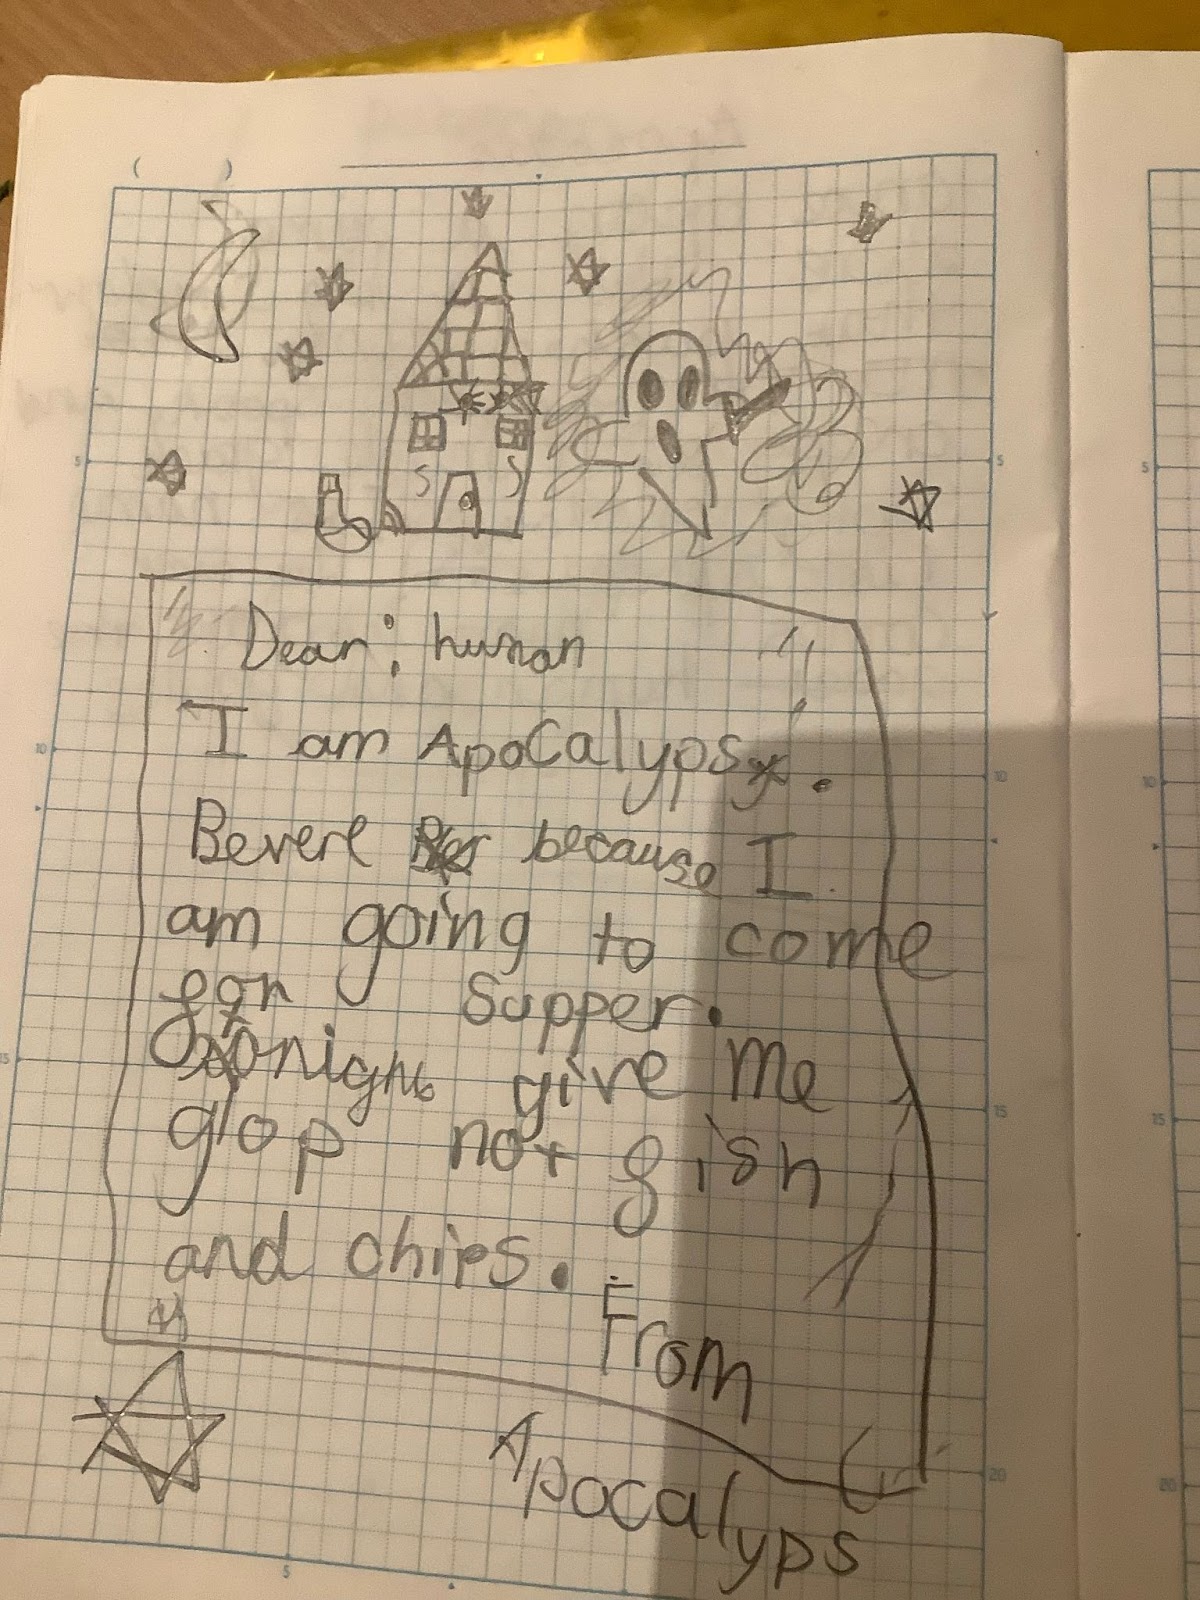 Dear; human
I am Apocalyps.
Bevere because I
am going to come
for supper.
tonight give me
glop not fish
and chips.
From
Apocalyps